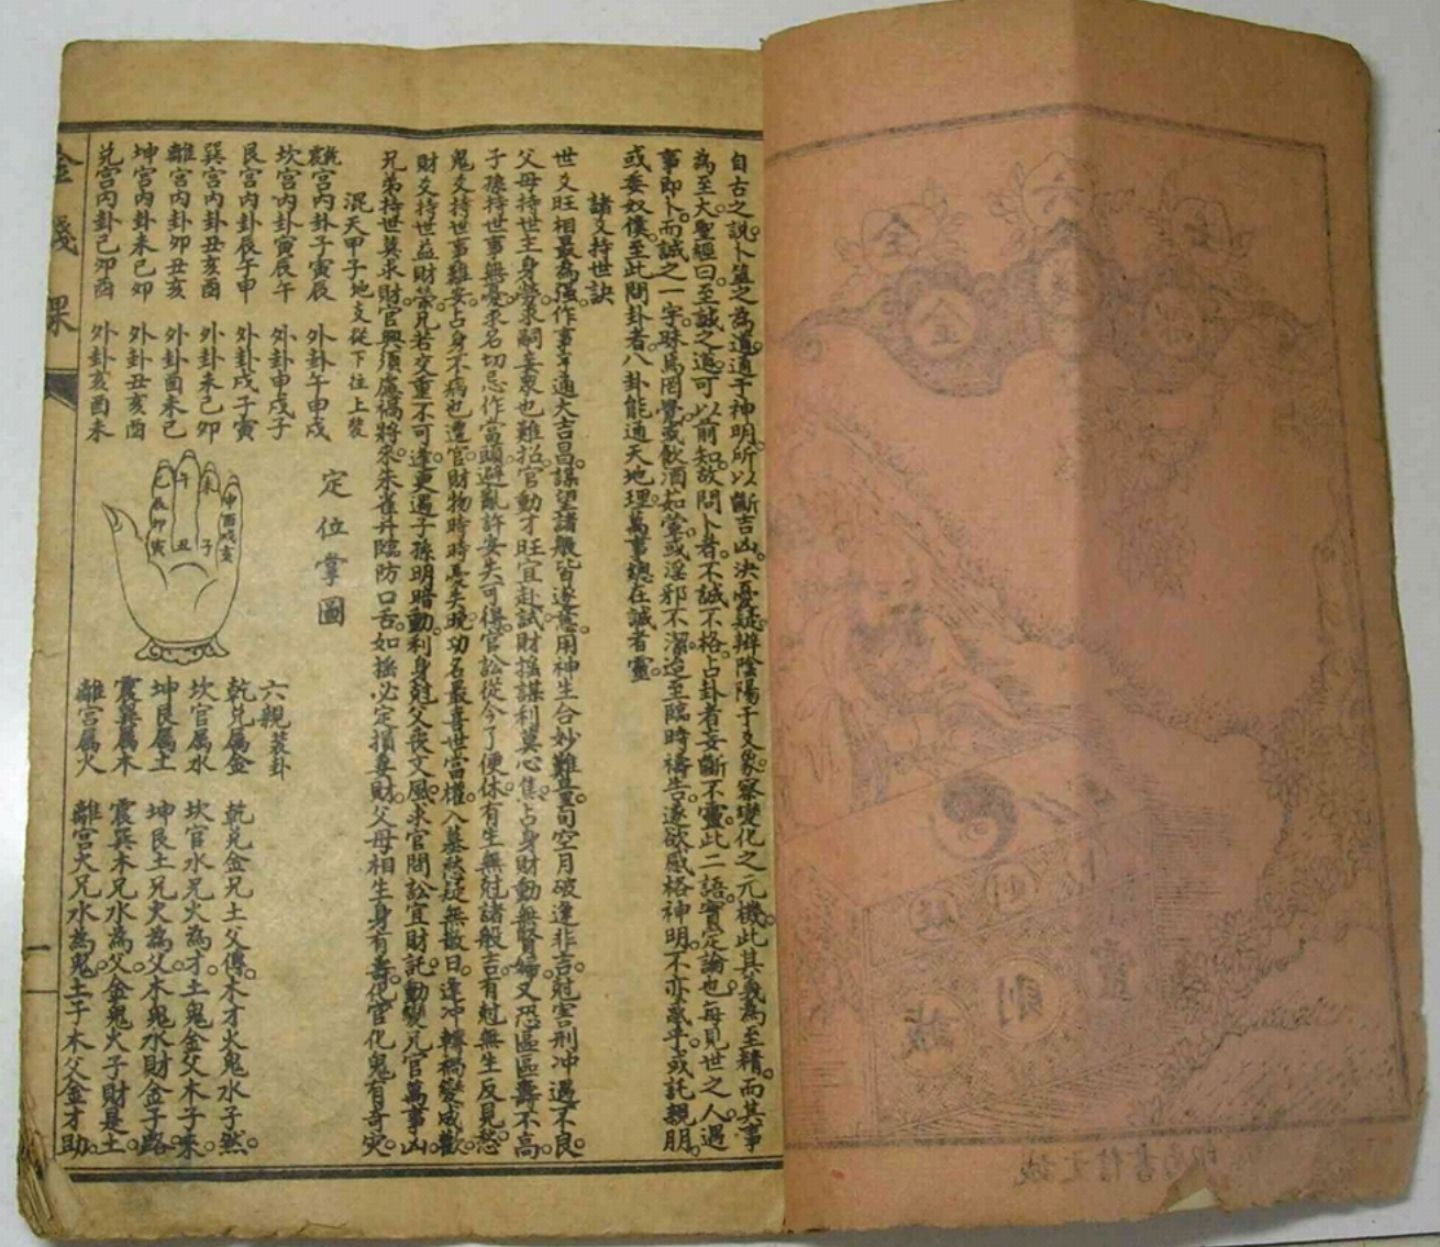 自古之說卜筮之為道通于神明所以斷吉凶決憂疑辨陰陽于爻象察變化之元機此其義為至精而其事
為至大聖經曰至誠之道可以前知故問卜者不誠不格占卦者妄斷不靈此二語實定論也每見世之人遇
事即卜而誠之一字殊為罔覺或飲酒茹葷或淫邪不潔迨至臨時禱告遂欲感格神明不亦
乎或託親朋
或委奴僕至此問卦者八卦能通天地理萬事總在誠者靈
諸爻持世訣
世爻旺相最為強作事亨通大吉昌謀望諸般皆遂意用神生合妙難量旬空月破逢非吉尅害刑冲遇不良
父母持世主身勞求嗣妾衆也難招官動才旺宜赴試財搖謀利莫心焦占身財動無賢婦又恐區區壽不高
子孫持世事無憂求名切忌作當頭避亂許安失可得官訟從今了便休有生無尅諸般吉有尅無生反見愁
鬼爻持世事難安占身不病也遭官財物時時憂失脫功名最喜世當權入墓愁疑無散日逢冲轉禍變成歡
財爻持世益財榮兄若交重不可逢更遇子孫明暗動利身尅父喪文風求官問訟宜財託動變兄官萬事凶
兄弟持世莫求財官興須慮禍將來朱雀并臨防口舌如搖必定損妻財父母相生身有壽化官化鬼有奇災
混天甲子地支從下往上裝
乾震宮內卦子寅辰 外卦午申戌
坎宮內卦寅辰午 外卦申戌子
艮宮內卦辰午申 外卦戌子寅
巽宮內卦丑亥酉 外卦未巳卯
離宮內卦卯丑亥 外卦酉未己
坤宮內卦未巳卯 外卦丑亥酉
兌宮內卦己卯酉 外卦亥酉未
定位掌圖
巳 午 未 申
辰 酉
卯 戌
寅 丑 子 亥
六親裝卦
乾兌屬金 乾兌金兄土父傳木才火鬼水子然
坎官屬水 坎官水兄火為才土鬼金父木子來
坤艮屬土 坤艮土兄火為父木鬼水財金子路
震巽屬木 震巽木兄水為父金鬼火子財是土
離宮屬火 離宮火兄水為鬼土子木父金才助
金錢課
一